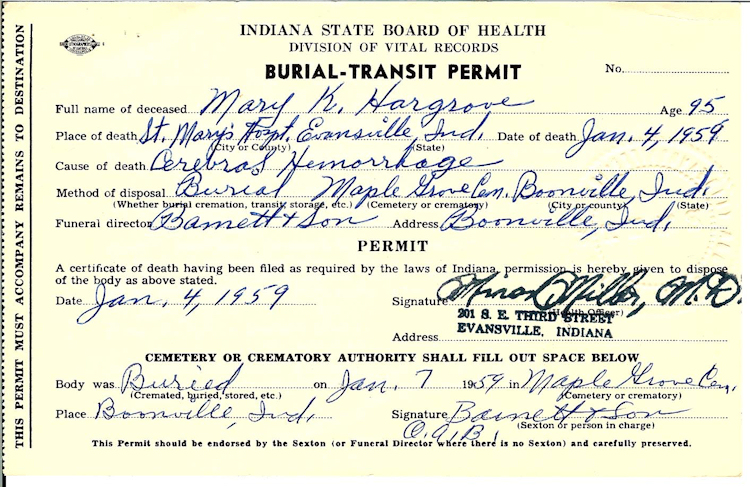 INDIANA STATE BOARD OF HEALTH
DIVISION OF VITAL RECORDS
BURIAL-TRANSIT PERMIT
No.
Full name of deceased Mary K. Hargrove Age 95
Place of death St. Mary's Hospt. Evansville, Ind. Date of death Jan. 4, 1959
(City or County) (State)
Cause of death Cerebral Hemorrhage
Method of disposal Burial Maple Grove Cem. Boonville, Ind.
(Whether burial cremation, transit, storage, etc.) (Cemetery or crematory) (City or county) (State)
Funeral director Barnett & Son Address Boonville, Ind.
PERMIT
A certificate of death having been filed as required by the laws of Indiana, permission is hereby given to dispose
of the body as above stated.
Date Jan. 4, 1959 Signature Minor Miller, M.D.
(Health Officer)
201 S. E. THIRD STREET
EVANSVILLE, INDIANA
Address
CEMETERY OR CREMATORY AUTHORITY SHALL FILL OUT SPACE BELOW
Body was Buried on Jan. 7 1959 in Maple Grove Cem.
(Cremated, buried, stored, etc.) (Cemetery or crematory)
Place Boonville, Ind. Signature Barnett & Son
(Sexton or person in charge)
O.A.B.
This Permit should be endorsed by the Sexton (or Funeral Director where there is no Sexton) and carefully preserved.
THIS PERMIT MUST ACCOMPANY REMAINS TO DESTINATION